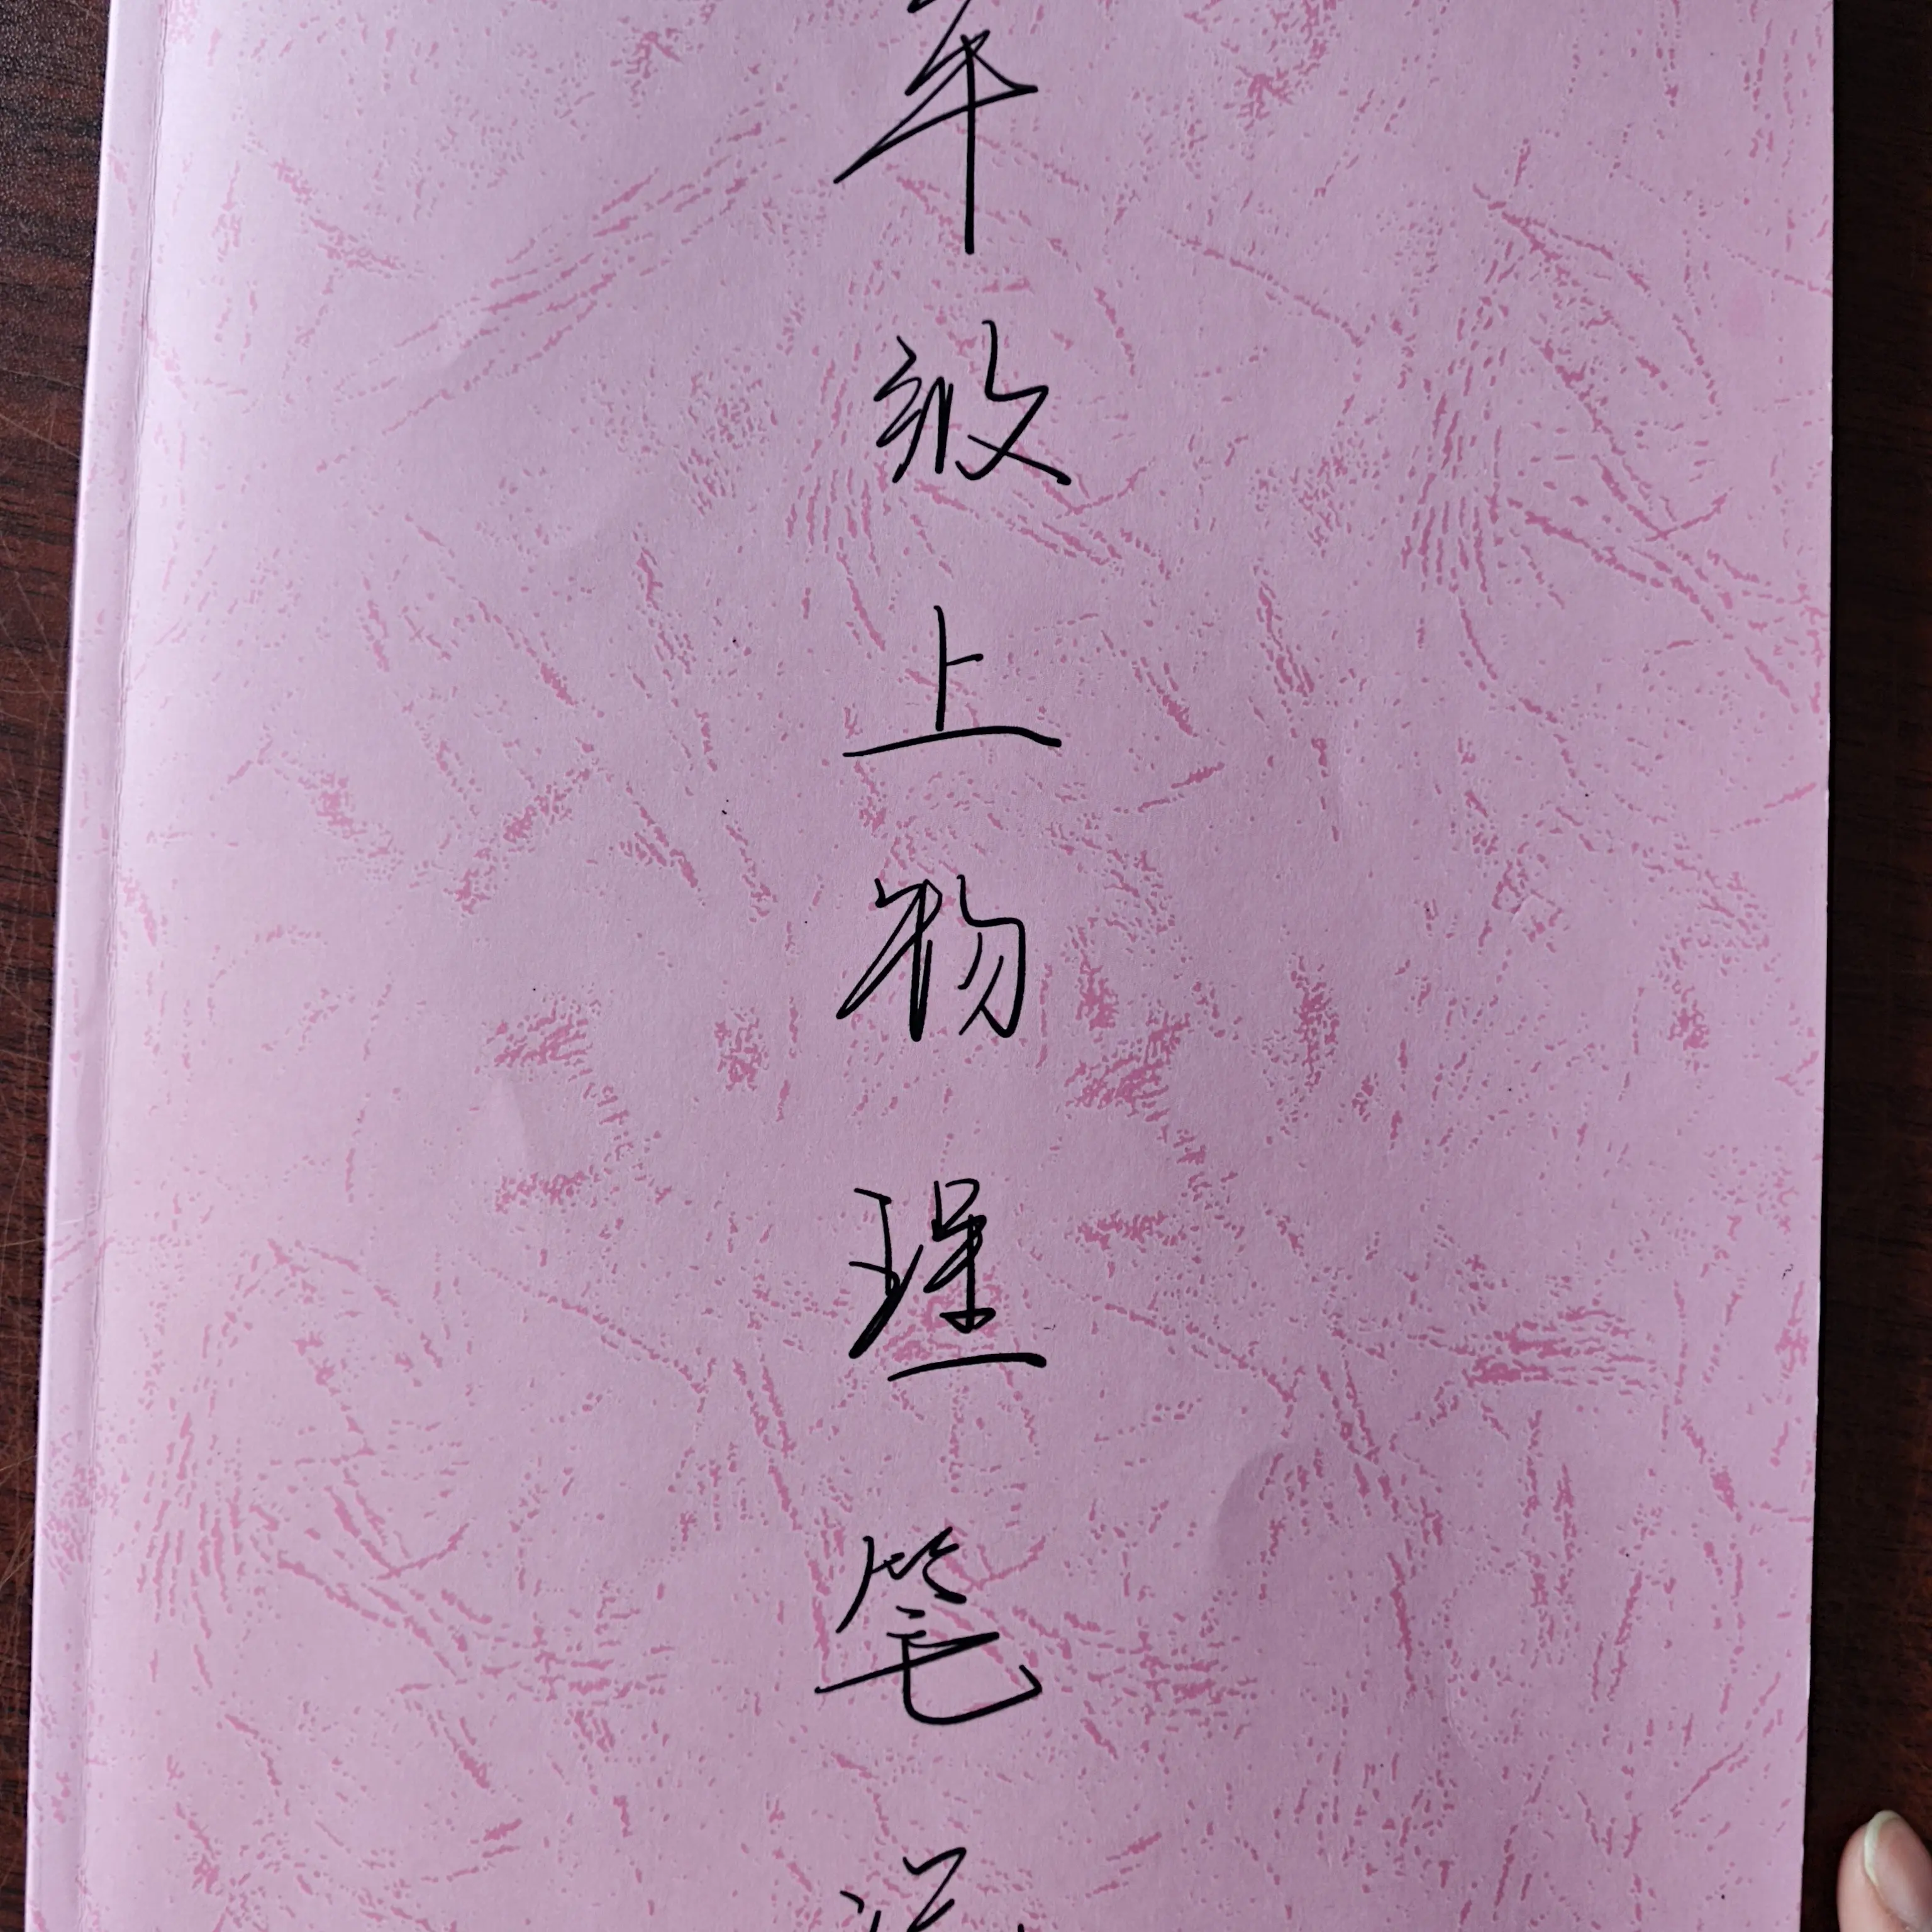 年级上物理笔